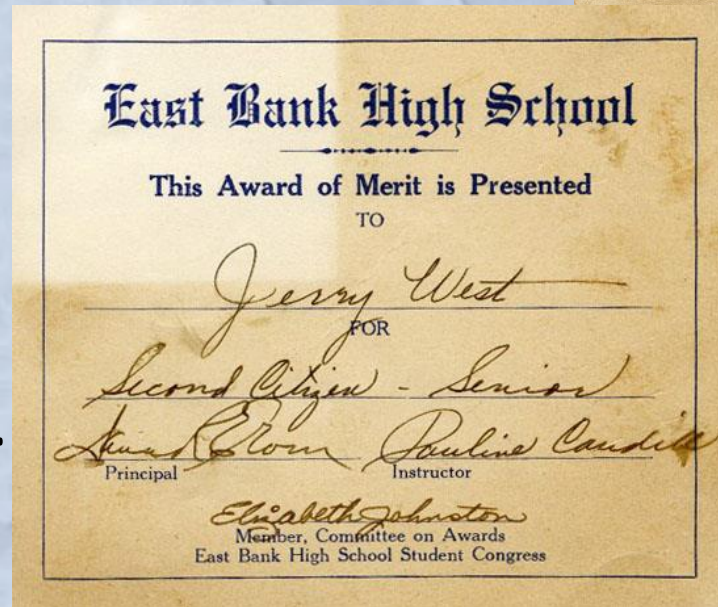 East Bank High School
This Award of Merit is Presented
TO
Jerry West
FOR
Second Citizen - Senior
Pauline Caudill
Principal Instructor
Elizabeth Johnston
Member, Committee on Awards
East Bank High School Student Congress